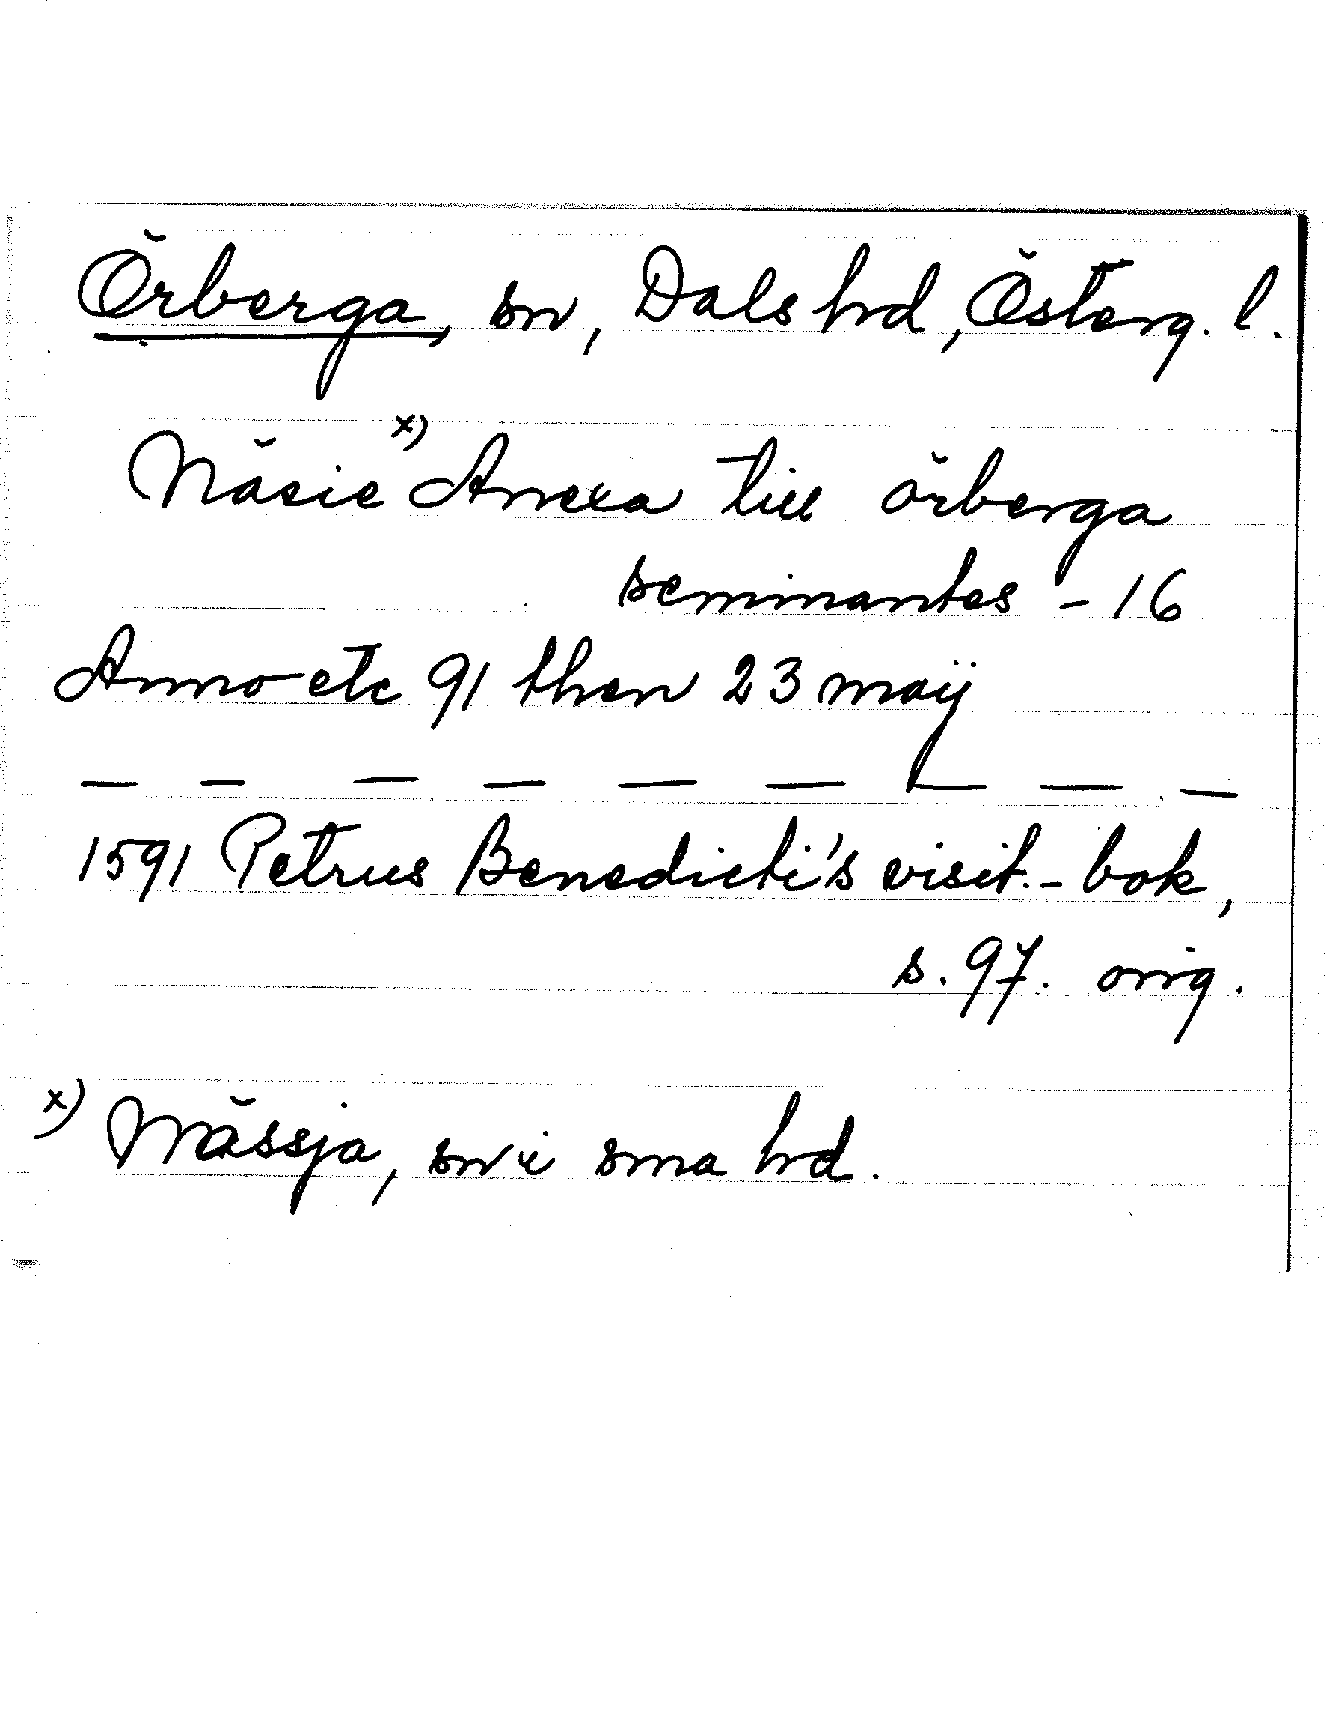 Örberga, sn, Dals hrd, Österg. l.
Näsie x) Anexa till örberga
seminantes - 16
Anno etc 91 then 23 maij
— — — — — — — — —
1591 Petrus Benedicti's visit.-bok,
s. 97. orig.
x) Nässja, sn i sma hrd.